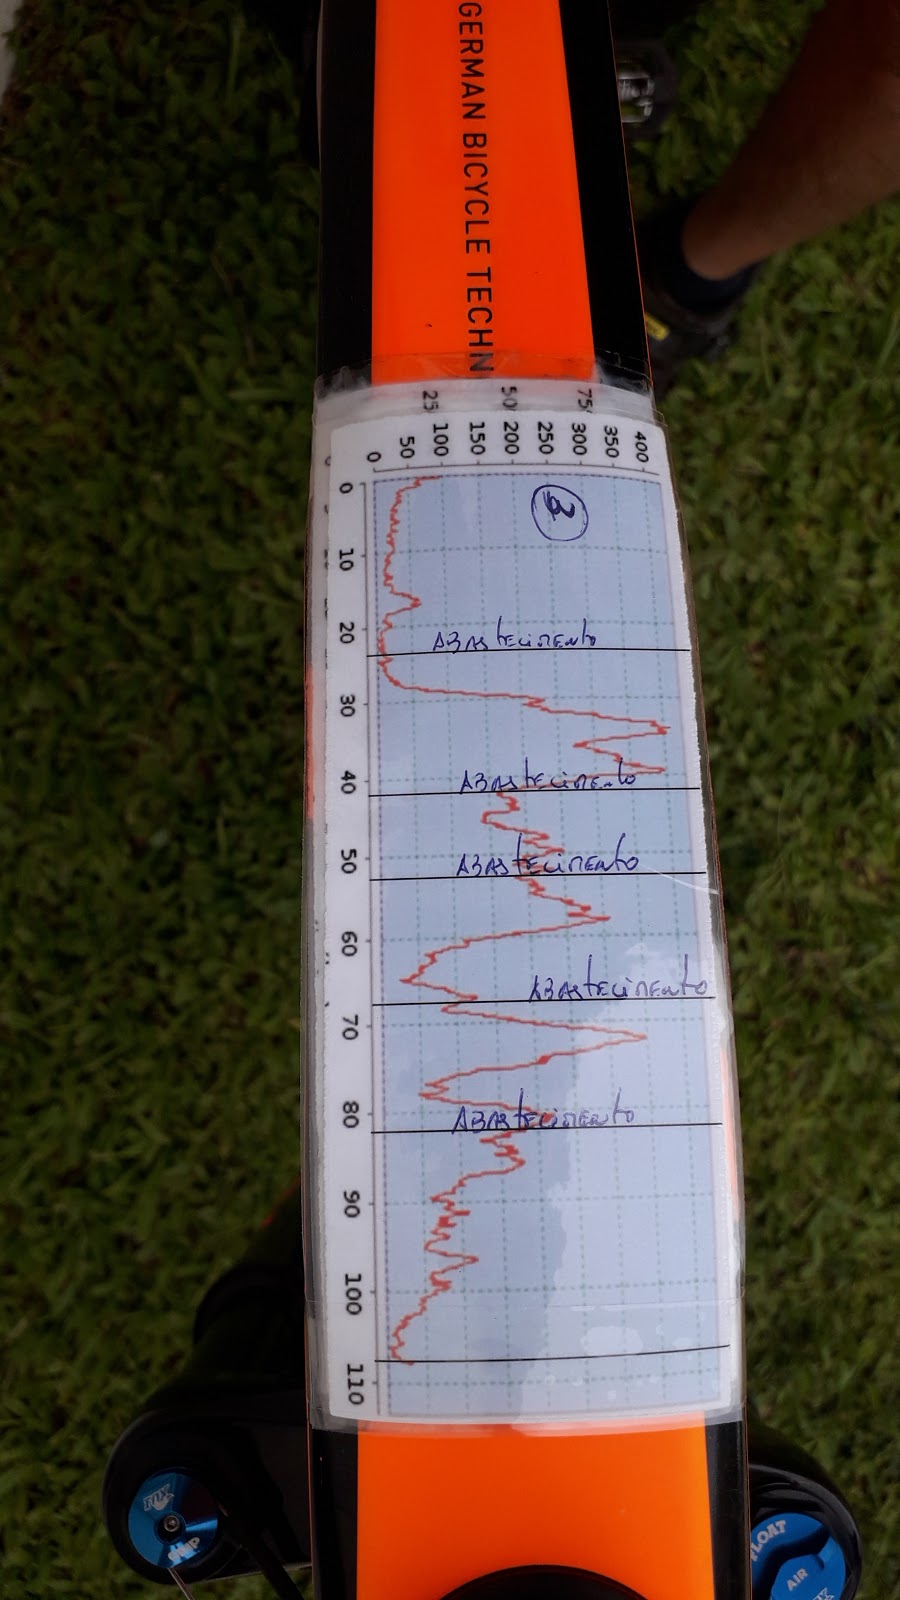 GERMAN BICYCLE TECHN
25 50 75
0 50 100 150 200 250 300 350 400
3
0 10 20 30 40 50 60 70 80 90 100 110
ABAstecimento
ABAstecimento
ABAstecimento
ABAstecimento
ABAstecimento
FOX
FLOAT
AIR